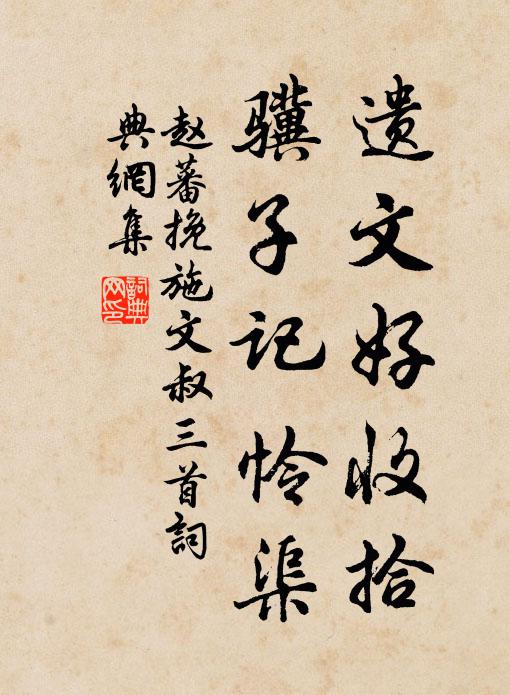 遗文好收拾
骥子记怜渠
赵蕃挽施文叔三首詞
典網集
詞典
网印